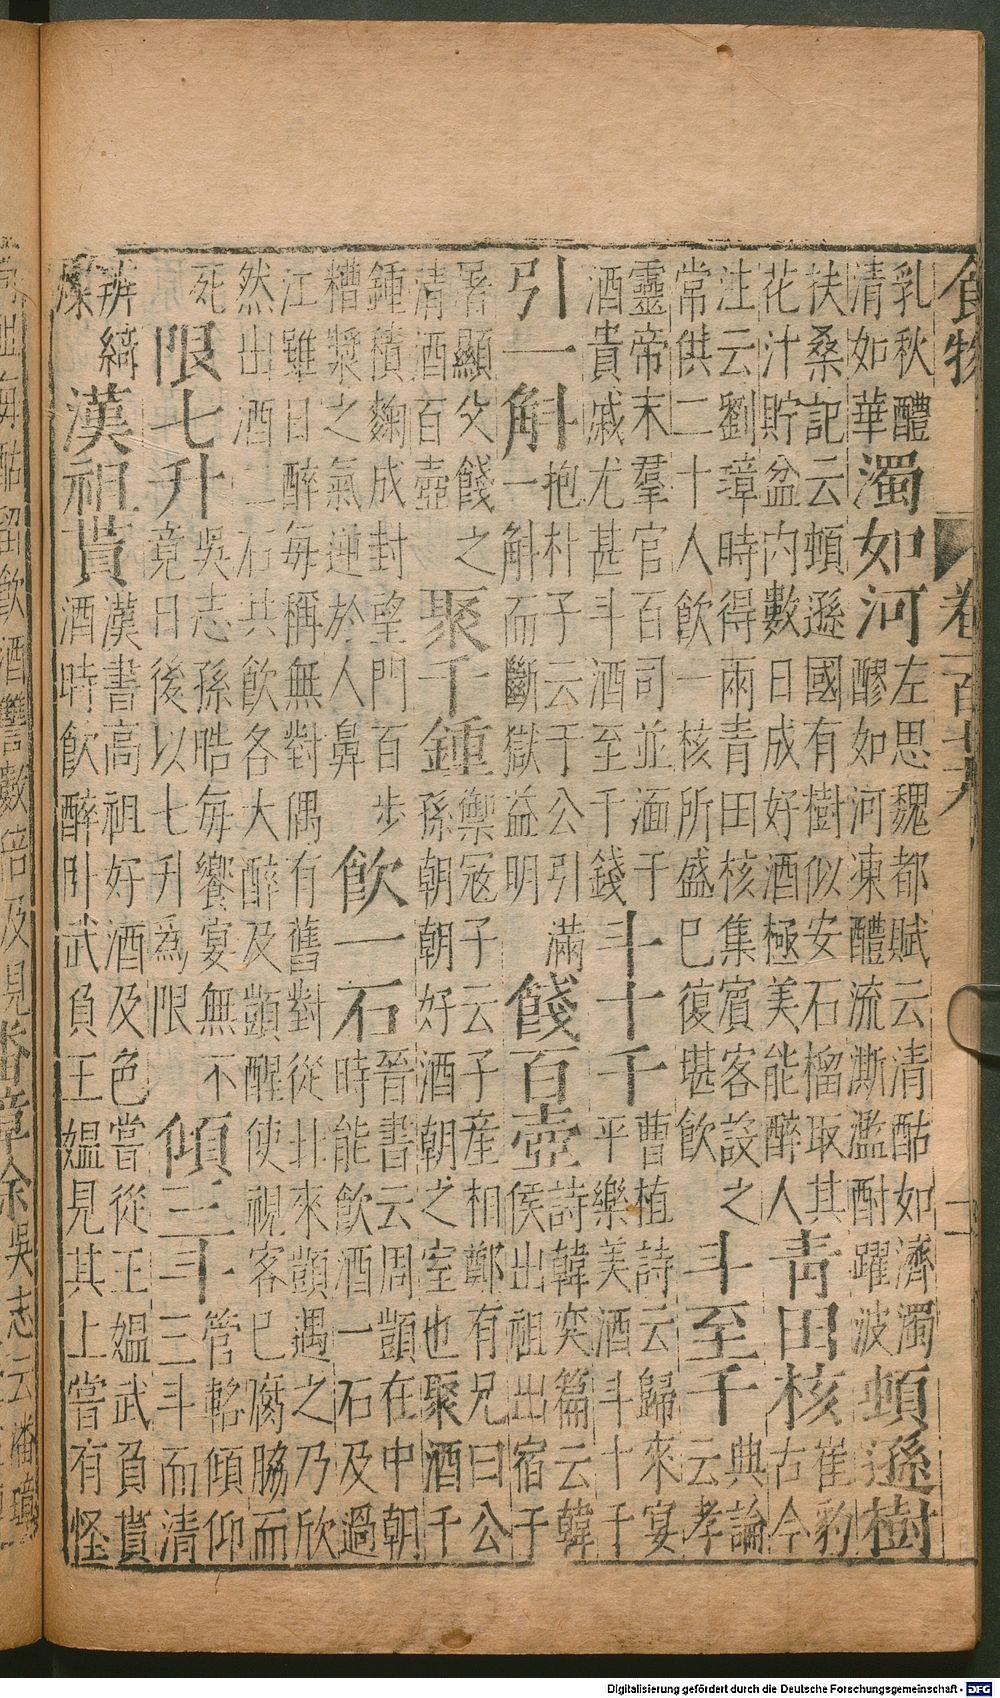 食物
乳秋醴清如華濁如河左思魏都賦云清酤如濟濁醪如河凍醴流澌濫酎躍波頓遜樹
扶桑記云頓遜國有樹似安石榴取其花汁貯盆內數日成好酒極美能醉人青田核崔豹古今
注云劉璋時得兩青田核集賓客設之常供二十人飲一核所盛巳復堪飲斗至千典論云孝
靈帝末羣官百司並湎于酒貴戚尤甚斗酒至千錢斗十千曹植詩云歸來宴平樂美酒斗十千
引一斛抱朴子云于公引滿一斛而斷獄益明餞百壺詩韓奕篇云韓侯出祖出宿于
屠顯父餞之清酒百壺聚千鍾禦寇子云子產相鄭有兄曰公孫朝朝好酒朝之室也聚酒千
鍾積麴成封望門百步糟漿之氣逆於人鼻飲一石晉書云周顗在中朝時能飲酒一石及過
江雖日醉每稱無對偶有舊對從北來顗遇之乃欣然出酒二石共飲各大醉及顗醒使視客巳腐脇而
死限七升吳志孫皓每饗宴無不竟日後以七升為限傾三斗管輅傾仰三斗而清
辨綺燦漢祖貰漢書高祖好酒及色嘗從王媼武負貰酒時飲醉卧武負王媼見其上嘗有怪
Digitalisierung gefördert durch die Deutsche Forschungsgemeinschaft - DFG